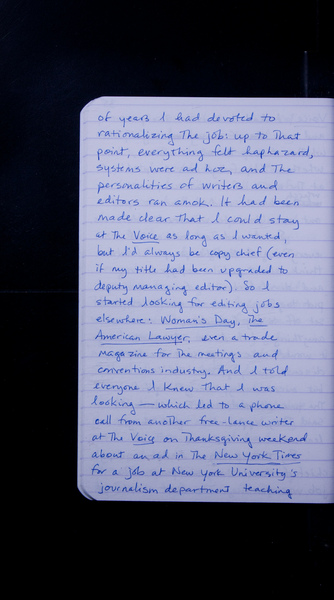 of years I had devoted to
rationalizing the job: up to that
point, everything felt haphazard,
systems were ad hoc, and the
personalities of writers and
editors ran amok. It had been
made clear that I could stay
at the Voice as long as I wanted,
but I'd always be copy chief (even
if my title had been upgraded to
deputy managing editor). So I
started looking for editing jobs
elsewhere: Woman's Day, The
American Lawyer, even a trade
magazine for the meetings and
conventions industry. And I told
everyone I knew that I was
looking — which led to a phone
call from another free-lance writer
at the Voice on Thanksgiving weekend
about an ad in the New York Times
for a job at New York University's
journalism department teaching